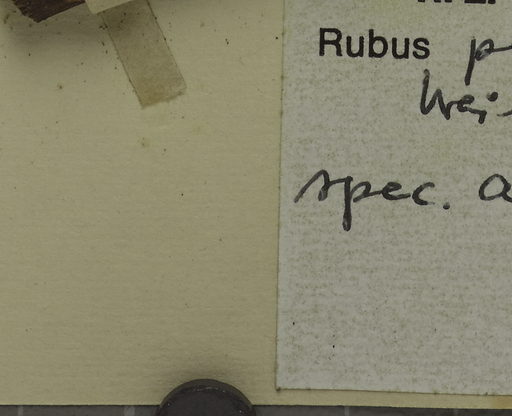 Rubus p
Wei
spec. a